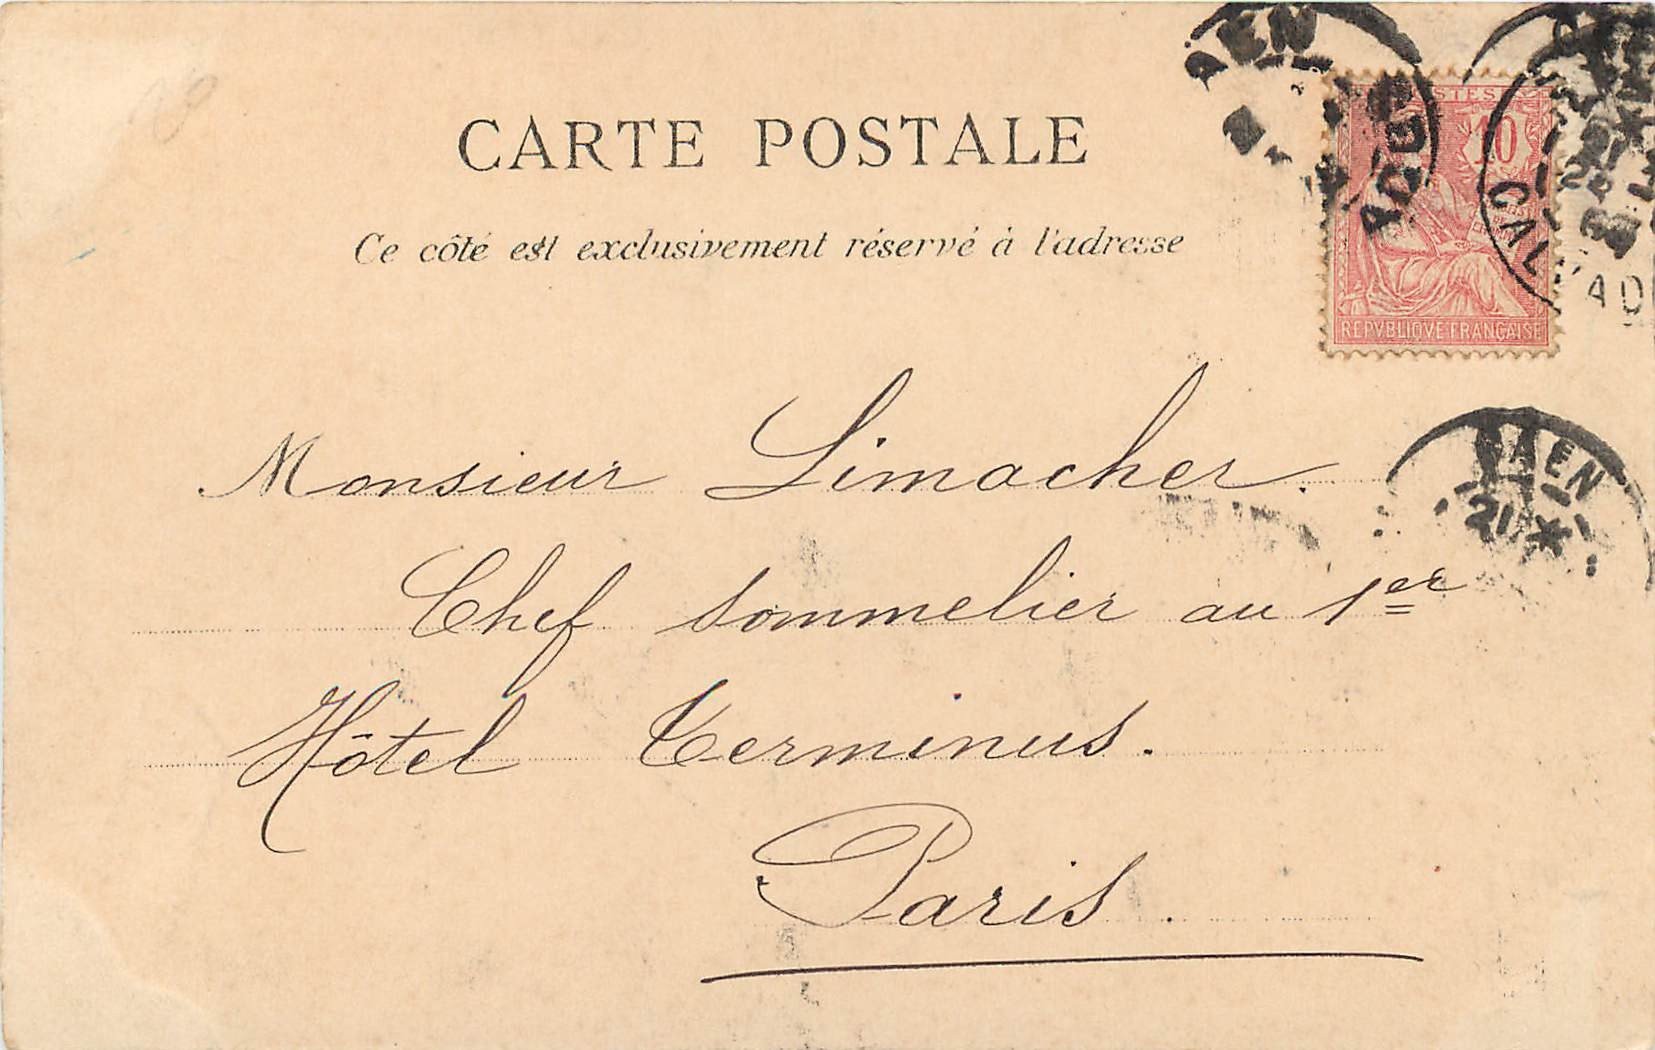 CARTE POSTALE
Ce côté est exclusivement réservé à l'adresse
10
REPVBLIQVE FRANÇAISE
CAEN
21
Monsieur Limacher.
Chef sommelier au 1er
Hôtel Terminus.
Paris.